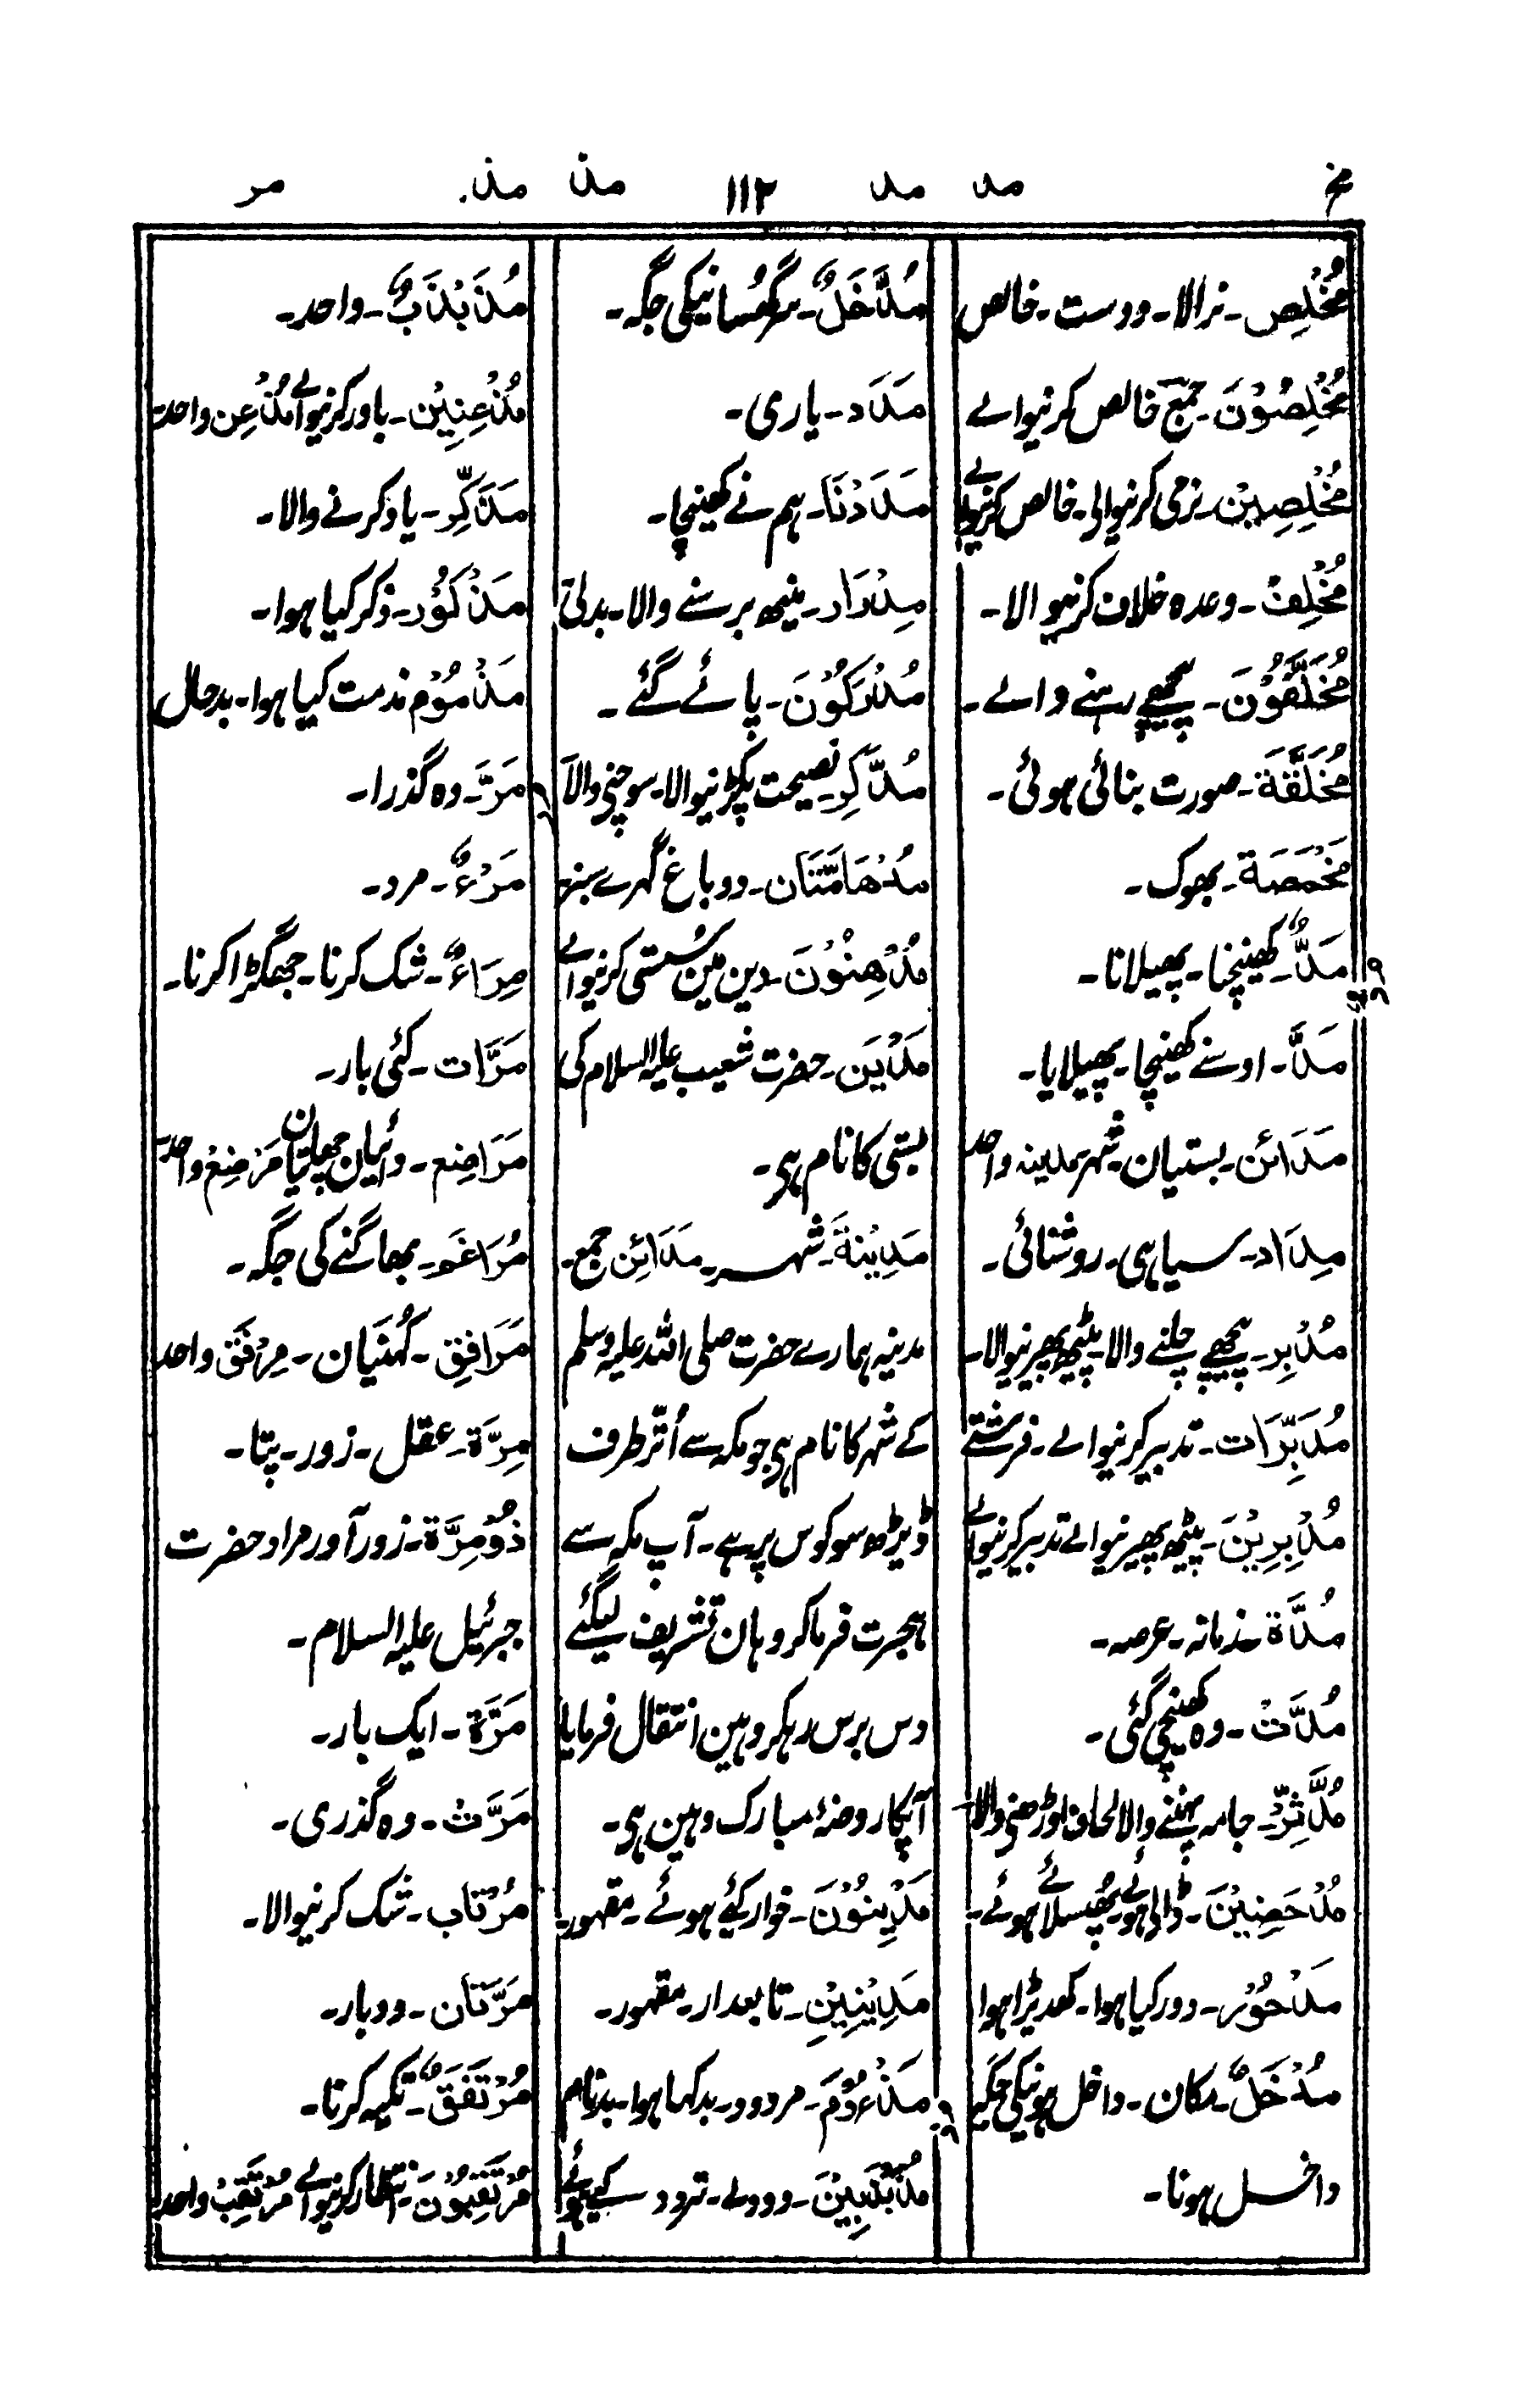 مخ مد مد ۱۱۲ مذ مذ مر
مُخْلِص۔ نرالا۔ دوست۔ خالص
مُخْلِصُوْنَ۔ جمع خالص کرنیوالے
مُخْلِصِیْن۔ نرمی کرنیوالی۔ خالص کرنیوالے
مُخْلِفْ۔ وعدہ خلاف کرنیوالا۔
مُخَلَّفُوْنَ۔ پیچھے رہنے والے۔
مُخَلَّقَة۔ صورت بنائی ہوئی۔
مَخْمَصَة۔ بھوک۔
مَدٌّ۔ کھینچنا۔ پھیلانا۔
مَدَّ۔ اوسنے کھینچا۔ پھیلایا۔
مَدَائن۔ بستیان۔ شہر مدینہ واحد
مِدَاد۔ سیاہی۔ روشنائی۔
مُدْبِر۔ پیچھے چلنے والا۔ پیٹھ پھیرنیوالا۔
مُدَبِّرَات۔ تدبیر کرنیوالے۔ فرشتے
مُدْبِرِیْنَ۔ پیٹھ پھیرنیوالے تدبیر کرنیوالے
مُدَّة۔ زمانہ۔ عرصہ۔
مُدَّتْ۔ وہ کھینچی گئی۔
مُدَّثِّرْ۔ جامہ پہننے والا لحاف اوڑھنی والا۔
مُدْحَضِیْنَ۔ ڈالی ہوئے پھسلائے ہوئے۔
مَدْحُوْر۔ دور کیا ہوا۔ کھدیڑا ہوا
مُدْخَلٌ۔ مکان۔ داخل ہونیکی جگہ
داخل ہونا۔
مُدَّخَلٌ۔ سرگھسانیکی جگہ۔
مَدَد۔ یاری۔
مَدَدْنَا۔ ہم نے کھینچا۔
مِدْرَار۔ مینھ برسنے والا۔ بدلی
مُدْرَکُوْنَ۔ پائے گئے۔
مُدَّکِر۔ نصیحت پکڑنیوالا۔ سوچنی والا
مُدْهَامَّتَان۔ دو باغ گہرے سبز
مُدْهِنُوْنَ۔ دین مین سُستی کرنیوالے
مَدْیَن۔ حضرت شعیب علیہ السلام کی
بستی کا نام ہی۔
مَدِیْنَةَ۔ شہر۔ مَدَائِن جمع۔
مدینہ ہمارے حضرت صلی اللہ علیہ وسلم
کے شہر کا نام ہی جو مکہ سے اُتّر طرف
ڈیڑھ سو کوس پر ہے۔ آپ مکہ سے
ہجرت فرما کر وہان تشریف لیگئے
دس برس رہکر وہین انتقال فرمایا
آپکا روضۂ مبارک وہین ہی۔
مَدِیْنُوْنَ۔ خوار کیئے ہوئے۔ مقہور۔
مَدِیْنِیْنِ۔ تابعدار۔ مقہور۔
مَذْءُوْمَ۔ مردود۔ بد کہا ہوا۔ بدنام
مُذَبْذَبِیْنَ۔ دودلے۔ تردد کیے ہوئے
مُذَبْذَبٌ۔ واحد۔
مُذْعِنِیْن۔ باور کرنیوالے مُذْعِن واحد
مُذَکِّر۔ یاد کرنے والا۔
مَذْکُوْر۔ ذکر کیا ہوا۔
مَذْمُوْم مذمت کیا ہوا۔ بدحال
مَرَّ۔ وہ گذرا۔
مَرْءٌ۔ مرد۔
مِرَاءٌ۔ شک کرنا۔ جھگڑا کرنا۔
مَرَّات۔ کئی بار۔
مَرَاضِع۔ دائیان چھاتیان مَرْضِعْ واحد
مُرَاغَم۔ بھاگنے کی جگہ۔
مَرَافِق۔ کُہنَیان۔ مِرْفَق واحد
مِرَّة۔ عقل۔ زور۔ پتا۔
ذُوْمِرَّة۔ زور آور مراد حضرت
جبرئیل علیہ السلام۔
مَرَّة۔ ایک بار۔
مَرَّتْ۔ وہ گذری۔
مُرْتَاب۔ شک کرنیوالا۔
مَرَّتَان۔ دوبار۔
مُرْتَفَقٌ۔ تکیہ کرنا۔
مُرْتَقِبُوْنَ۔ انتظار کرنیوالے مُرْتَقِبْ واحد